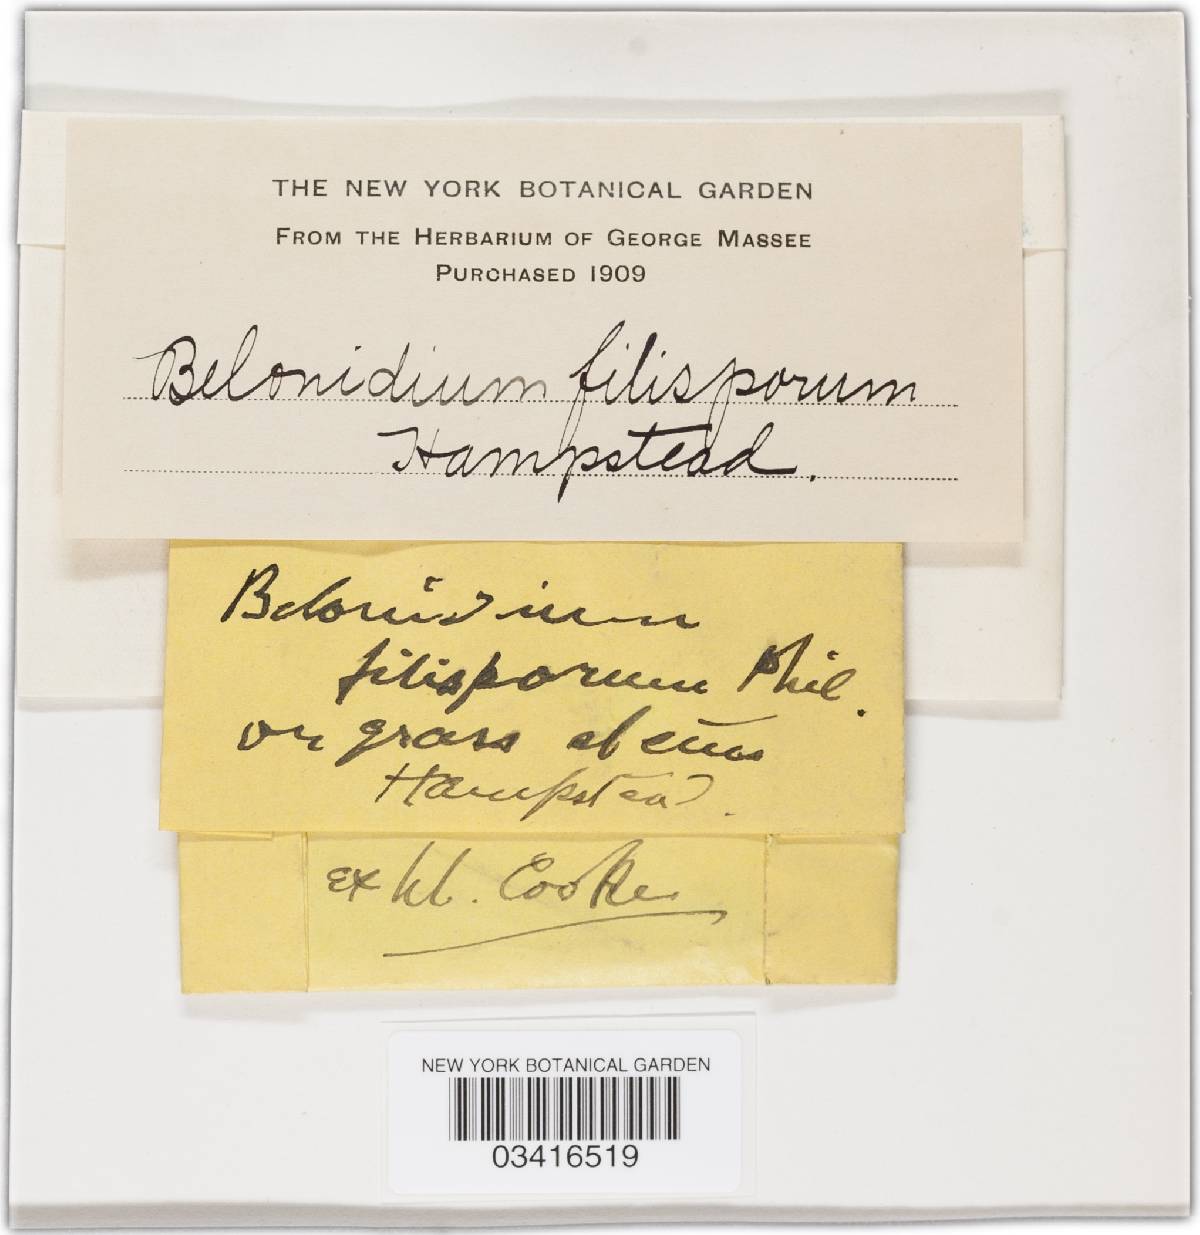 THE NEW YORK BOTANICAL GARDEN
FROM THE HERBARIUM OF GEORGE MASSEE
PURCHASED 1909
Belonidium filisporum
Hampstead.
Belonidium
filisporum Phil.
on grass
Hampstead.
ex Cooke
NEW YORK BOTANICAL GARDEN
03416519